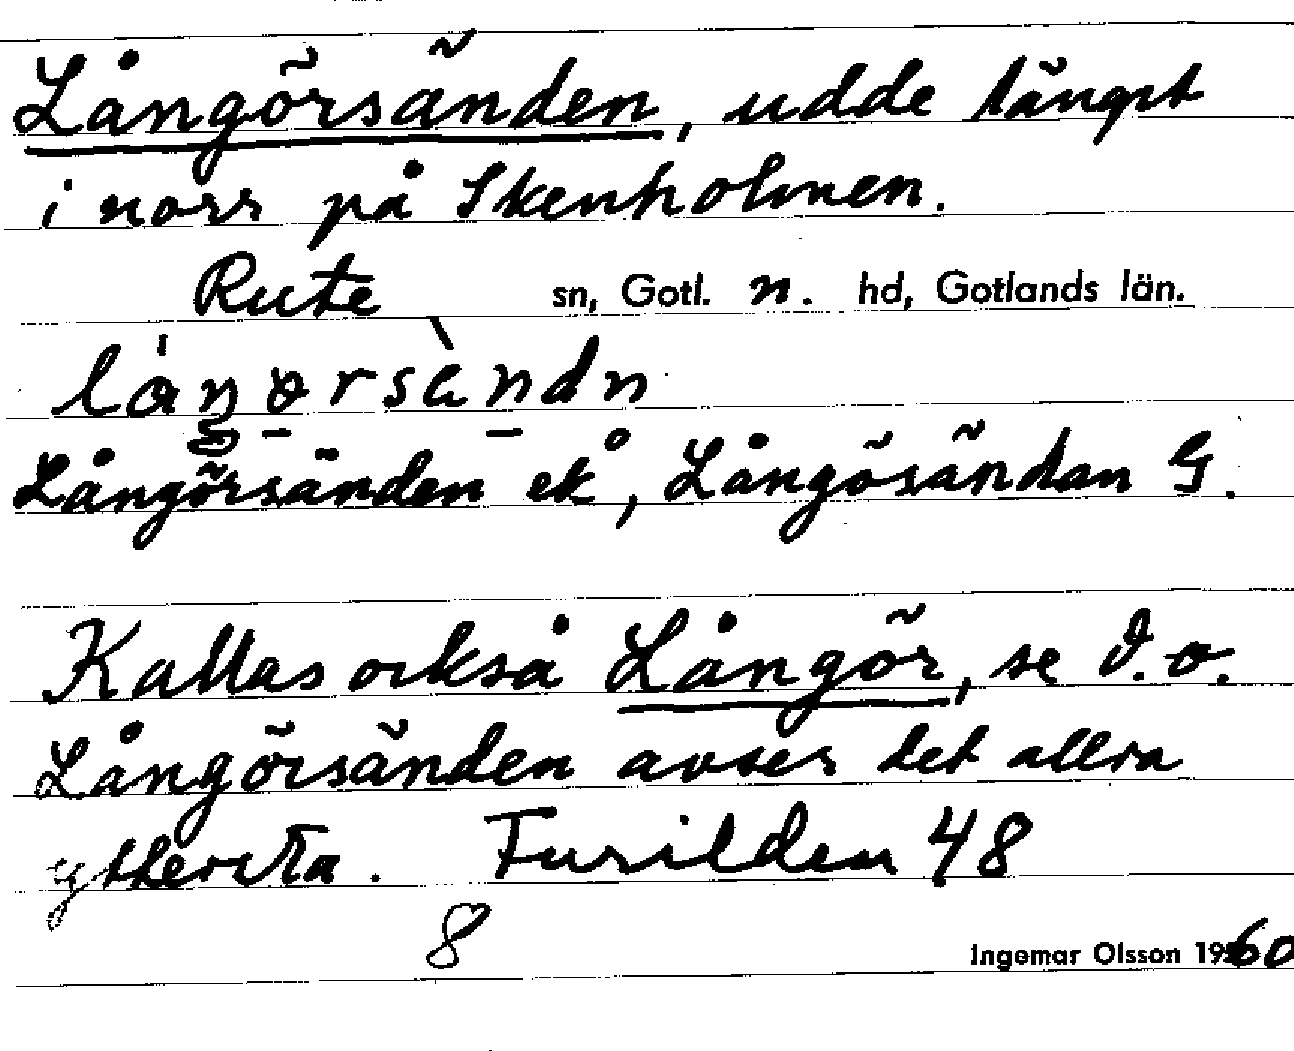 Långörsänden, udde längst
i norr på Skenholmen.
Rute sn, Gotl. n. hd, Gotlands län.
låŋörsàndn
Långörsänden ek, Långösändan G.
Kallas också Långör, se d.o.
Långörsänden avser det allra
yttersta. Furilden 48
8
Ingemar Olsson 1960